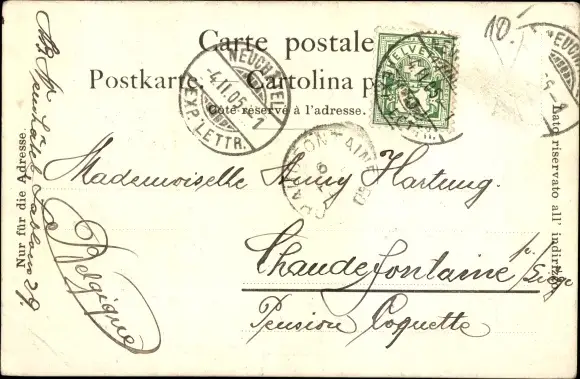 Carte postale
Postkarte. Cartolina p
Côté réservé à l'adresse.
NEUCHÂTEL
-4.II.05
1
EXP. LETTR.
HELVETIA
10.
CHAUDFONTAINE
Mademoiselle Anny Hartung.
Chaudefontaine p./Liège
Pension Coquette
Belgique
Nur für die Adresse.
Lato riservato all' indirizzo.
29.